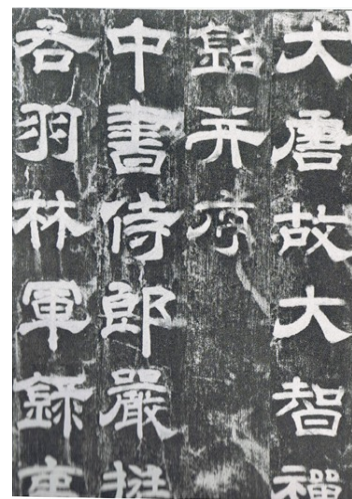 大唐故大智禪
銘并序
中書侍郎嚴挺
右羽林軍錄事